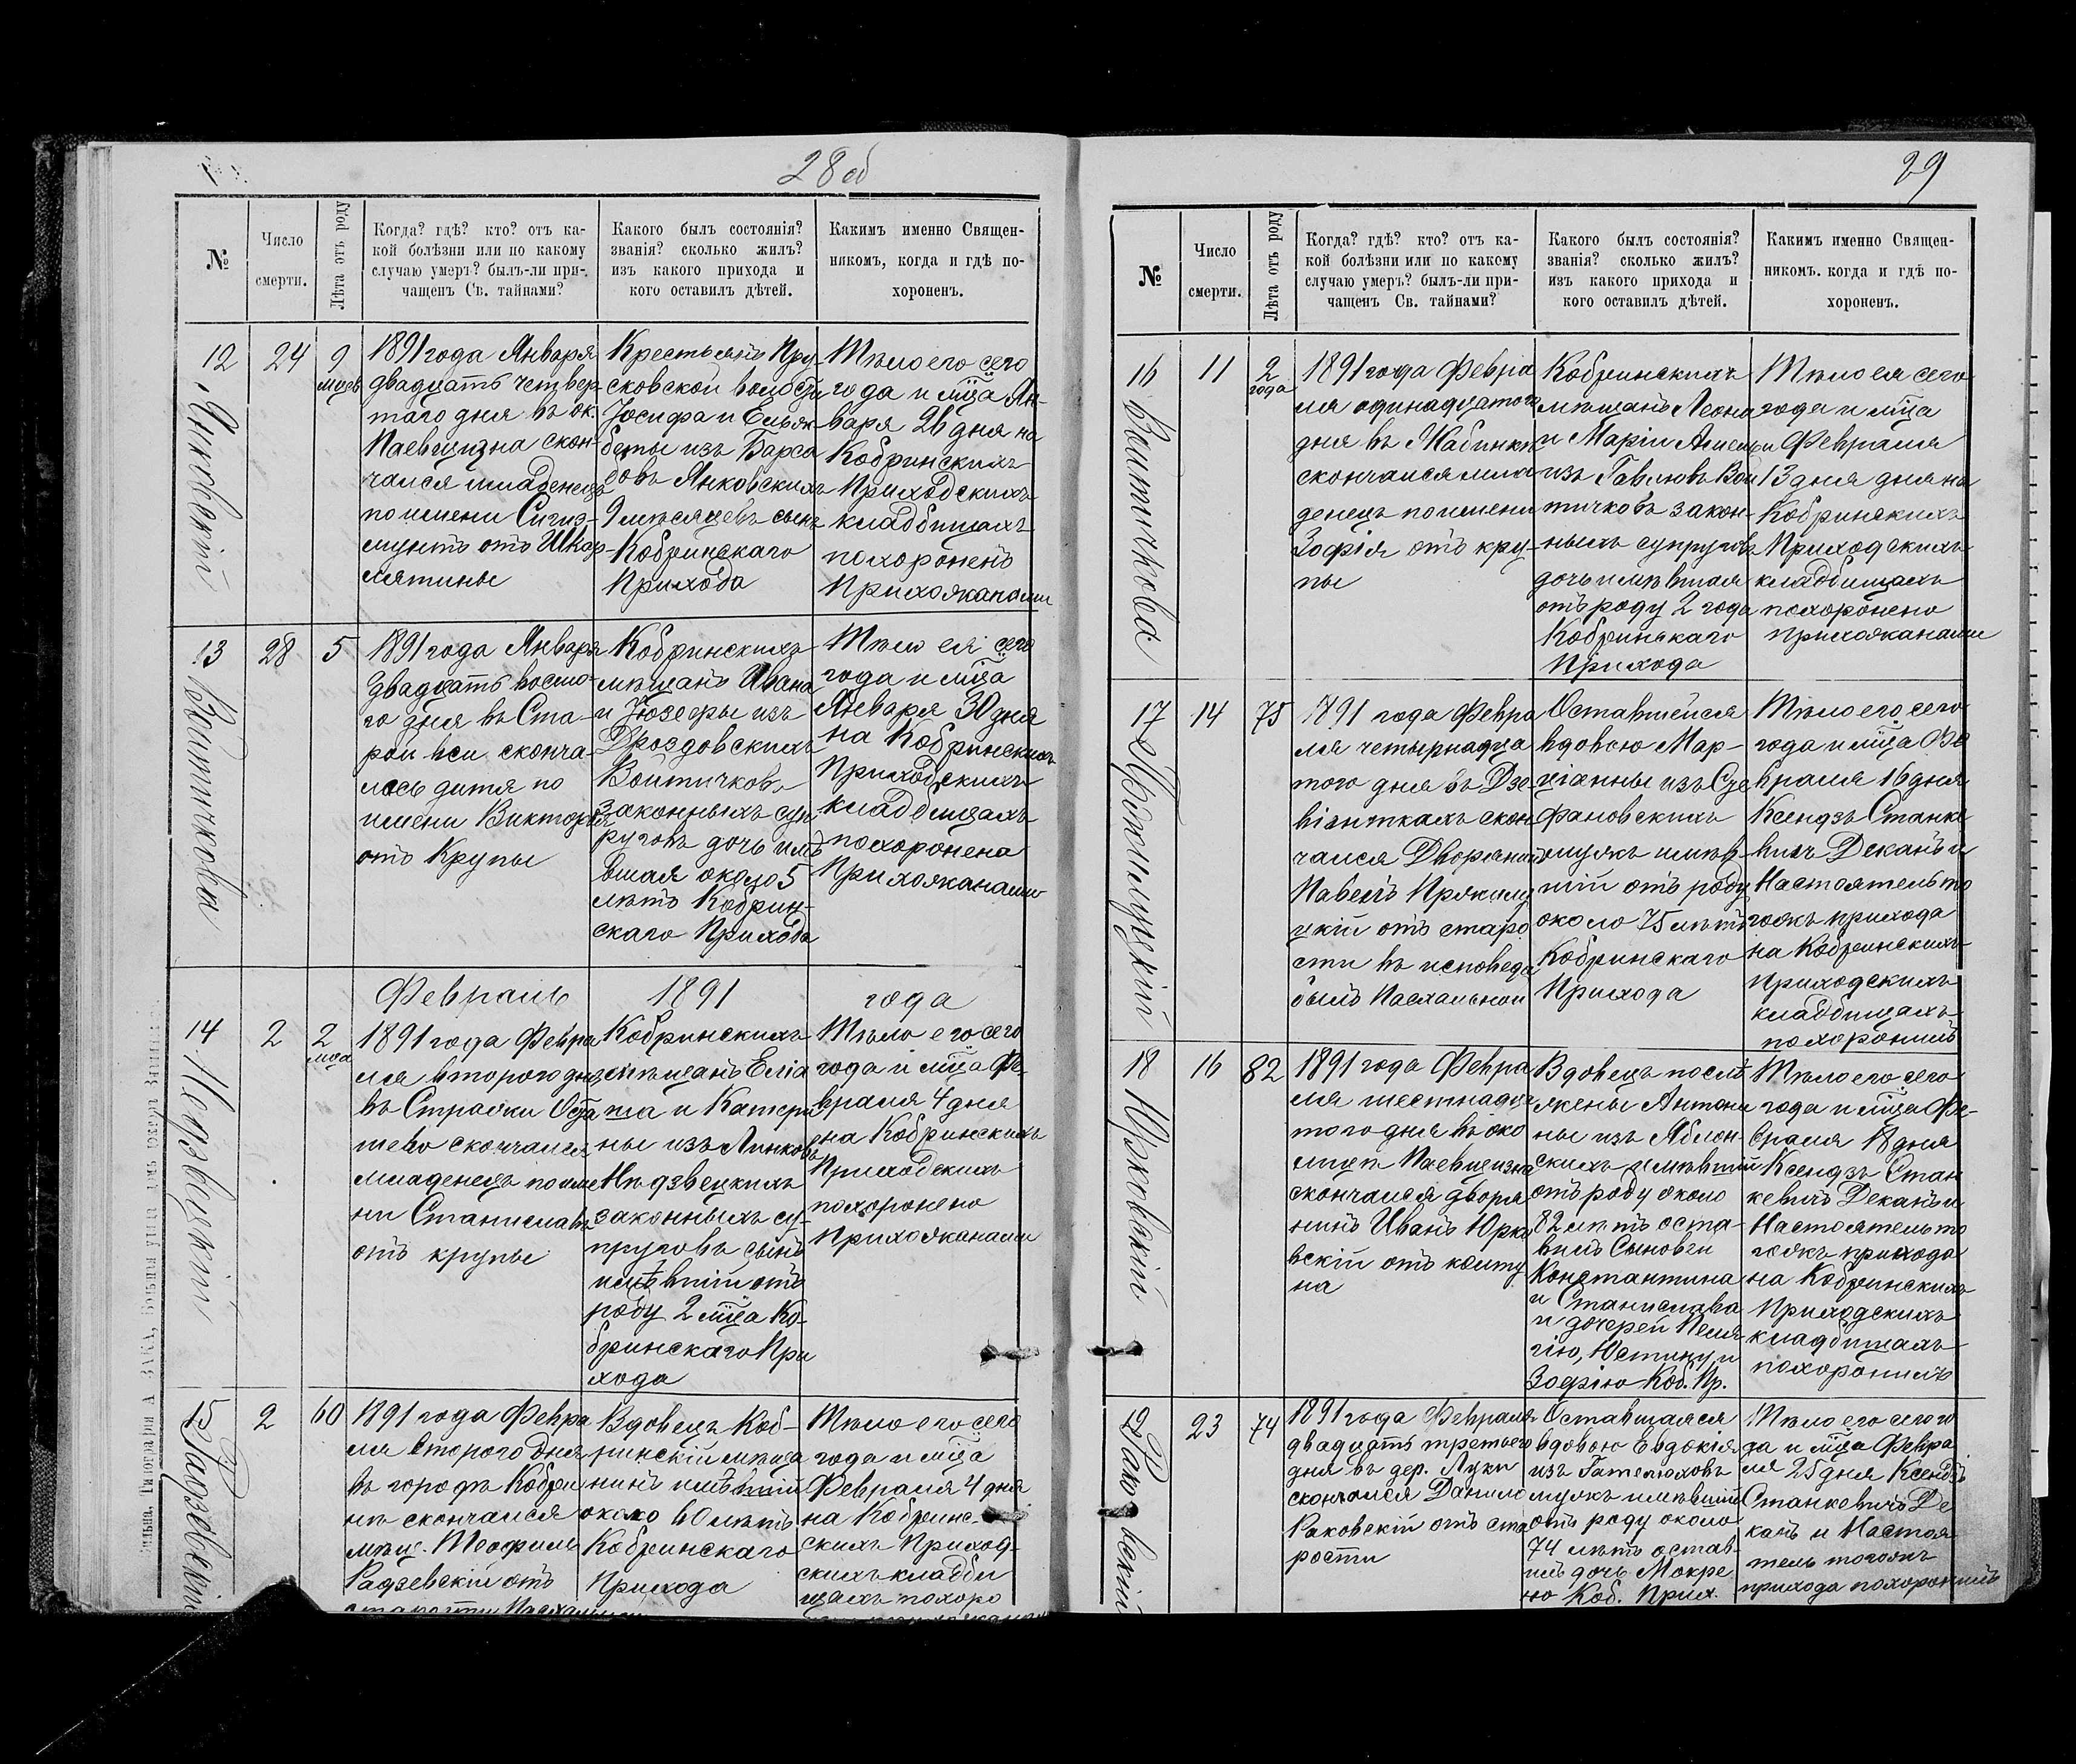 28 об
№
Число
смерти.
Лѣта отъ роду
Когда? гдѣ? кто? отъ ка-
кой болѣзни или по какому
случаю умеръ? былъ-ли при-
чащенъ Св. тайнами?
Какого былъ состоянія?
званія? сколько жилъ?
изъ какого прихода и
кого оставилъ дѣтей.
Какимъ именно Священ-
никомъ, когда и гдѣ по-
хороненъ.
12
Янковскій
24
9
мцев
1891 года Января
двадцать четвер
таго дня въ ок.
Паевщизна скон-
чался младенецъ
по имени Сигиз-
мунтъ отъ Шкар-
лятины
Крестьянъ Пру-
сковской волости
Іосифа и Ельжъ
беты изъ Барса
човъ Янковскихъ
9 мѣсяцевъ сынъ
Кобринскаго
Прихода
Тѣло его сего
года и мца Ян-
варя 26 дня на
Кобринскихъ
Приходскихъ
кладбищахъ
похороненъ
Прихожанами
13
Войтичкова
28
5
1891 года Января
двадцать восмо-
го дня въ Ста-
рой вси сконча-
лось дитя по
имени Викторія
отъ Крупы
Кобринскихъ
мѣщанъ Ивана
и Юзефы изъ
Дроздовскихъ
Войтичковъ
законныхъ суп
руговъ дочь имѣ
вшая около 5
лѣтъ Кобрин-
скаго Прихода
Тѣло ея сего
года и мца
Января 30 дня
на Кобринскихъ
Приходскихъ
кладбищахъ
похоронена
Прихожанами
Февраль 1891 года
14
2
2
мца
1891 года Февра
ля второго дня
въ Стражки
скончался
младенецъ по име
ни Станиславъ
отъ крупы
Кобринскихъ
мѣщанъ
и Катери
ны изъ Линковъ
Нѣдзвецкихъ
законныхъ су-
пруговъ сынъ
имѣвшій отъ
роду 2 мца Ко-
бринскаго При
хода
Тѣло его сего
года и мца Фе-
враля 4 дня
на Кобринскихъ
Приходскихъ
похоронено
Прихожанами
15
Радзевскій
2
60
1891 года Февра
ля второго дня
въ городѣ Кобри
нѣ скончался
мѣщ. Теофилъ
Радзевскій отъ
Вдовецъ Коб-
ринскій мѣща
нинъ имѣвшій
около 60 лѣтъ
Кобринскаго
Прихода
Тѣло его сего
года и мца
Февраля 4 дня
на Кобринс-
скихъ Приход-
скихъ кладби
щахъ похоро
29
№
Число
смерти.
Лѣта отъ роду
Когда? гдѣ? кто? отъ ка-
кой болѣзни или по какому
случаю умеръ? былъ-ли при-
чащенъ Св. тайнами?
Какого былъ состоянія?
званія? сколько жилъ?
изъ какого прихода и
кого оставилъ дѣтей.
Какимъ именно Священ-
никомъ. когда и гдѣ по-
хороненъ.
16
Войтичкова
11
2
года
1891 года Февра
ля одинадцатого
дня въ Жабинкѣ
скончался мла
денецъ по имени
Зофія отъ кру-
пы
Кобринскихъ
мѣщанъ Леона
и Маріи
изъ Гавлювъ Вой
тичковъ закон-
ныхъ супруговъ
дочь имѣвшая
отъ роду 2 года
Кобринскаго
Прихода
Тѣло ея сего
года и мца
Февраля
13 дня дня на
Кобринскихъ
Приходскихъ
кладбищахъ
похоронено
прихожанами
17
14
75
1891 года Февра
ля четырнадца
того дня въ
скон
чался Дворянинъ
Павелъ
цкій отъ старо
сти въ исповеди
былъ Пасхальной
Оставшейся
вдовою Мар-
ціанны изъ Сце
фановскихъ
мужъ имѣв-
шій отъ роду
около 75 лѣтъ
Кобринскаго
Прихода
Тѣло его сего
года и мца Фе
враля 16 дня
Ксендзъ Станке
вичъ Деканъ и
Настоятель то
гожъ прихода
на Кобринскихъ
Приходскихъ
кладбищахъ
похоронилъ
18
Юрковскій
16
82
1891 года Февра
ля шестнадца
того дня въ око
лицѣ Паевщизна
скончался дворя
нинъ Иванъ Юрко
вскій отъ колту
на
Вдовецъ послѣ
жены Антони
ны изъ Яблон-
скихъ имѣвшій
отъ роду около
82 лѣтъ оста-
вилъ Сыновей
Константина
и Станислава
и дочерей Пела
гію, Юстину и
Зофію Коб. Пр.
Тѣло его сего
года и мца Фе-
враля 18 дня
Ксендзъ Стан
кевичъ Деканъ и
Настоятель то
гожъ прихода
на Кобринскихъ
Приходскихъ
кладбищахъ
похоронилъ
19
Раковскій
23
74
1891 года Февраля
двадцать третьего
дня въ дер. Луки
скончался Данило
Раковскій отъ ста
рости
Оставшаяся
вдовою Евдокія
изъ Гателюховъ
мужъ имѣвшій
отъ роду около
74 лѣтъ остав-
илъ дочь Мокре
ю Коб. Прих.
Тѣло его сего го
да и мца Февра
ля 25 дня Ксендзъ
Станкевичъ Де
канъ и Настоя
тель тогожъ
прихода похоронилъ